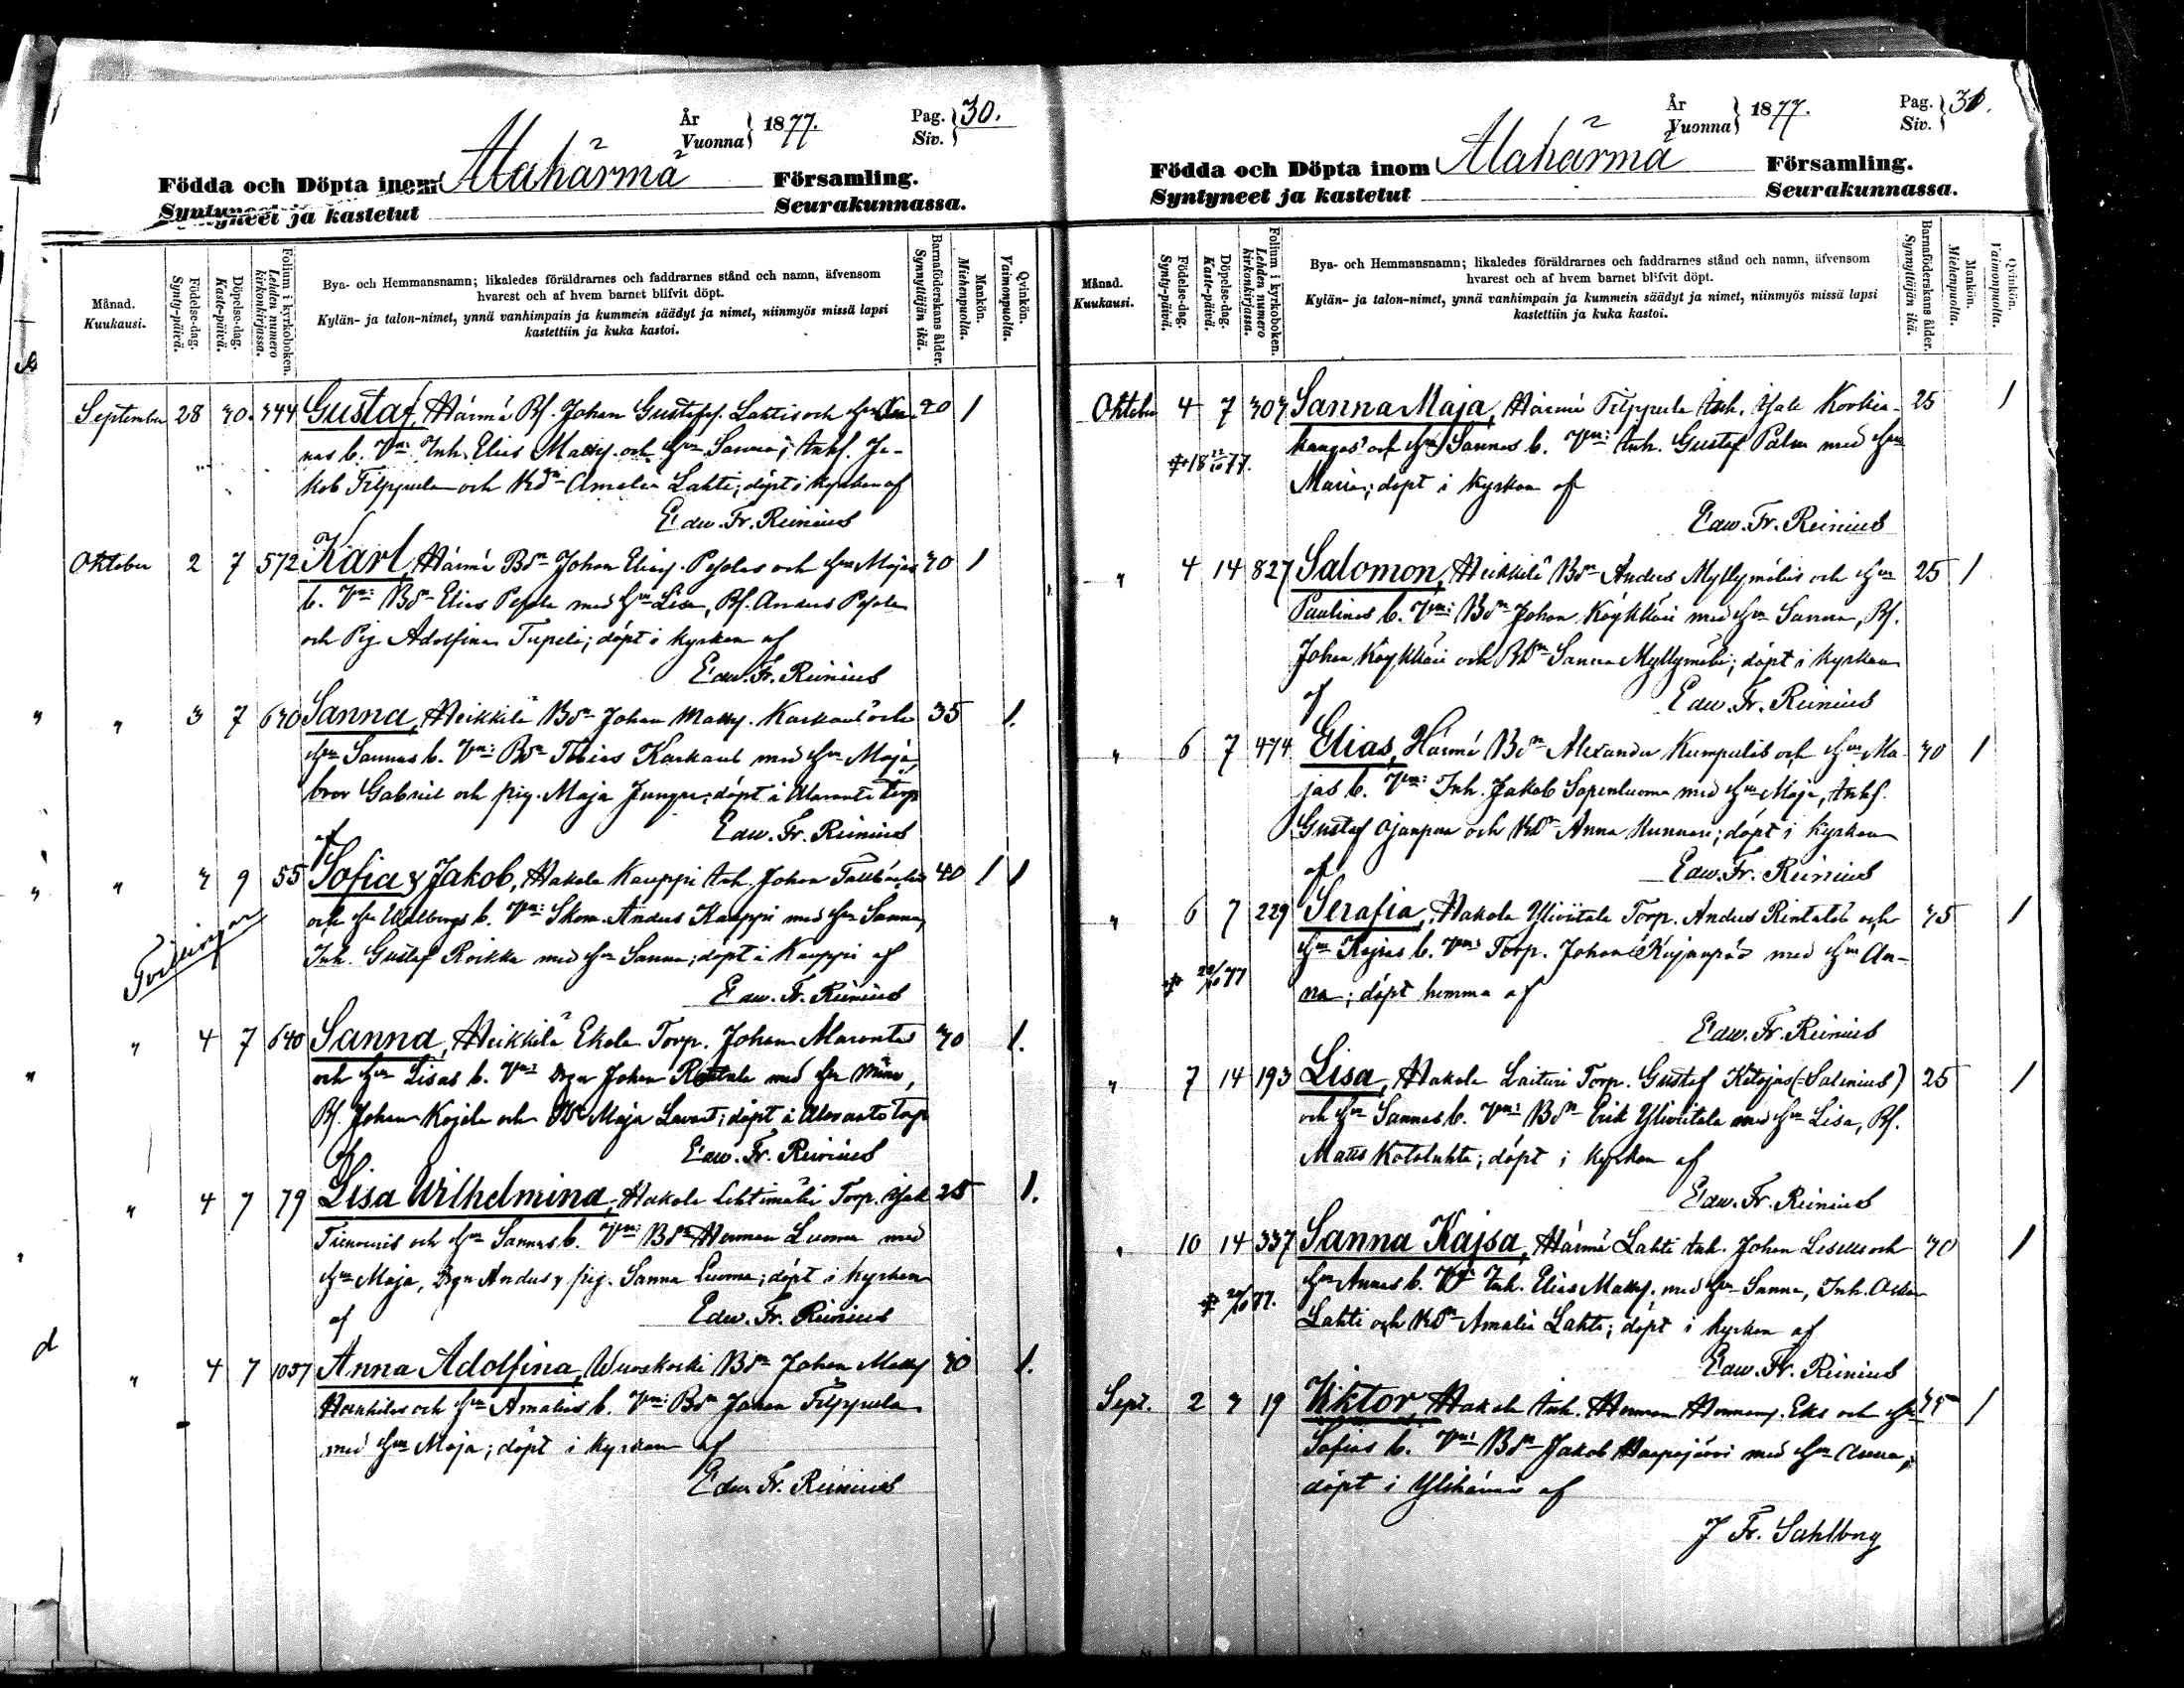 År
Vuonna
1877.
Pag.
Siv.
30.
Födda och Döpta inom Alahärmä Församling.
Syntyneet ja kastetut Seurakunnassa.
Månad.
Kuukausi.
Födelse-dag.
Synty-päivä.
Döpelse-dag.
Kaste-päivä.
Folium i kyrkoboken.
Lehden numero kirkonkirjassa.
Bya- och Hemmansnamn; likaledes föräldrarnes och faddrarnes stånd och namn, äfvensom
hvarest och af hvem barnet blifvit döpt.
Kylän- ja talon-nimet, ynnä vanhimpain ja kummein säädyt ja nimet, niinmyös missä lapsi
kastettiin ja kuka kastoi.
Barnaföderskans ålder.
Synnyttäjän ikä.
Mankön.
Miehenpuolia.
Qvinkön.
Vaimonpuolta.
September 28 30. 344 Gustaf, Härmä Bf. Johan Gustafss. Lahtis och Hu An- 20 1
nas b. Vn: Inh. Elias Mattss. och Hu Sanna; Inhs. Ja-
kob Filppula och Bdr Amalia Lahti; döpt i kyrkan af
Edw. Fr. Reinius
Oktober 2 7 572 Karl, Härmä Bdn Johan Eliass. Pesolas och Hu Majas 30 1
b. Vn: Bdn Elias Pesola med Hu Lisa, Bf. Anders Pesola
och Pig. Adolfina Tupeli; döpt i kyrkan af
Edw. Fr. Reinius
" 3 7 630 Sanna, Heikkilä Bdn Johan Mattss. Karkaus och 35 1.
Hu Sannas b. Vn: Bdn Tobias Karkaus med Hu Maja,
bror Gabriel och pig. Maja Jungar; döpt i torp
af Edw. Fr. Reinius
" 3 9 55 Sofia & Jakob, Hakola Kauppi Inh. Johan 40 1 1
och Hu Walborgs b. Vn: Skom. Anders Kauppi med Hu Sanna,
Inh. Gustaf Roikka med Hu Sanna; döpt i Kauppi af
Edw. Fr. Reinius
Tvillingar
" 4 7 640 Sanna, Heikkilä Ekola Torp. Johan 30 1.
och Hu Lisas b. Vn: Drgn Johan med Hu
Bf. Johan Kojola och Maja; döpt i torp
af Edw. Fr. Reinius
" 4 7 79 Lisa Wilhelmina, Hakola Lehtimäki Torp. Isak 25 1.
och Hu Sannas b. Vn: Bdn Herman Luoma med
Hu Maja, Drgn Anders & pig. Sanna Luoma; döpt i kyrkan
af Edw. Fr. Reinius
" 4 7 1057 Anna Adolfina, Wuoskoski Bdn Johan Mattss 30 1.
och Hu Amalias b. Vn: Bdn Johan Filppula
med Hu Maja; döpt i kyrkan af
Edw. Fr. Reinius
År
Vuonna
1877.
Pag.
Siv.
31.
Födda och Döpta inom Alahärmä Församling.
Syntyneet ja kastetut Seurakunnassa.
Månad.
Kuukausi.
Födelse-dag.
Synty-päivä.
Döpelse-dag.
Kaste-päivä.
Folium i kyrkoboken.
Lehden numero kirkonkirjassa.
Bya- och Hemmansnamn; likaledes föräldrarnes och faddrarnes stånd och namn, äfvensom
hvarest och af hvem barnet blifvit döpt.
Kylän- ja talon-nimet, ynnä vanhimpain ja kummein säädyt ja nimet, niinmyös missä lapsi
kastettiin ja kuka kastoi.
Barnaföderskans ålder.
Synnyttäjän ikä.
Mankön.
Miehenpuolta.
Qvinkön.
Vaimonpuolta.
Oktober 4 7 303 Sanna Maja, Härmä Filppula Inh. Isak Korkia- 25 1
kangas och Hu Sannas b. Vn: Inh. Gustaf Palm med Hu
Maria; döpt i kyrkan af
Edw. Fr. Reinius
" 4 14 827 Salomon, Heikkilä Bdn Anders Myllymäkis och Hu 25 1
Paulinas b. Vn: Bdn Johan Köykkäri med Hu Sanna, Bf.
Johan Köykkäri och Bdr Sanna Myllymäki; döpt i kyrkan
af Edw. Fr. Reinius
" 6 7 474 Elias, Härmä Bdn Alexander Kumpulas och Hu Ma- 30 1
jas b. Vn: Inh. Jakob Sopenluoma med Hu Maja, Inhs.
Gustaf Ojanpää och Bdr Anna Kunnari; döpt i kyrkan
af Edw. Fr. Reinius
" 6 7 229 Serafia, Hakola Yliviitala Torp. Anders Rintalas och 35 1
Hu Kajsas b. Vn: Torp. Johan Kujanpää med Hu An-
na; döpt hemma af
Edw. Fr. Reinius
" 7 14 193 Lisa, Hakola Laituri Torp. Gustaf Ketojas (=Salinius) 25 1
och Hu Sannas b. Vn: Bdn Erik Yliviitala med Hu Lisa, Bf.
Matts Kotolahti; döpt i kyrkan af
Edw. Fr. Reinius
" 10 14 337 Sanna Kajsa, Härmä Lahti Inh. Johan och 30 1
Hu Annas b. Vn: Inh. Elias Mattss. med Hu Sanna, Inh.
Lahti och Bdr Amalia Lahti; döpt i kyrkan af
Edw. Fr. Reinius
Sept. 2 3 19 Viktor, Hakola Inh. Herman Hermanss. Eks och Hu 35 1
Sofias b. Vn: Bdn Jakob Haapojärvi med Hu Anna;
döpt i Ylihärmä af
J Fr. Sahlberg